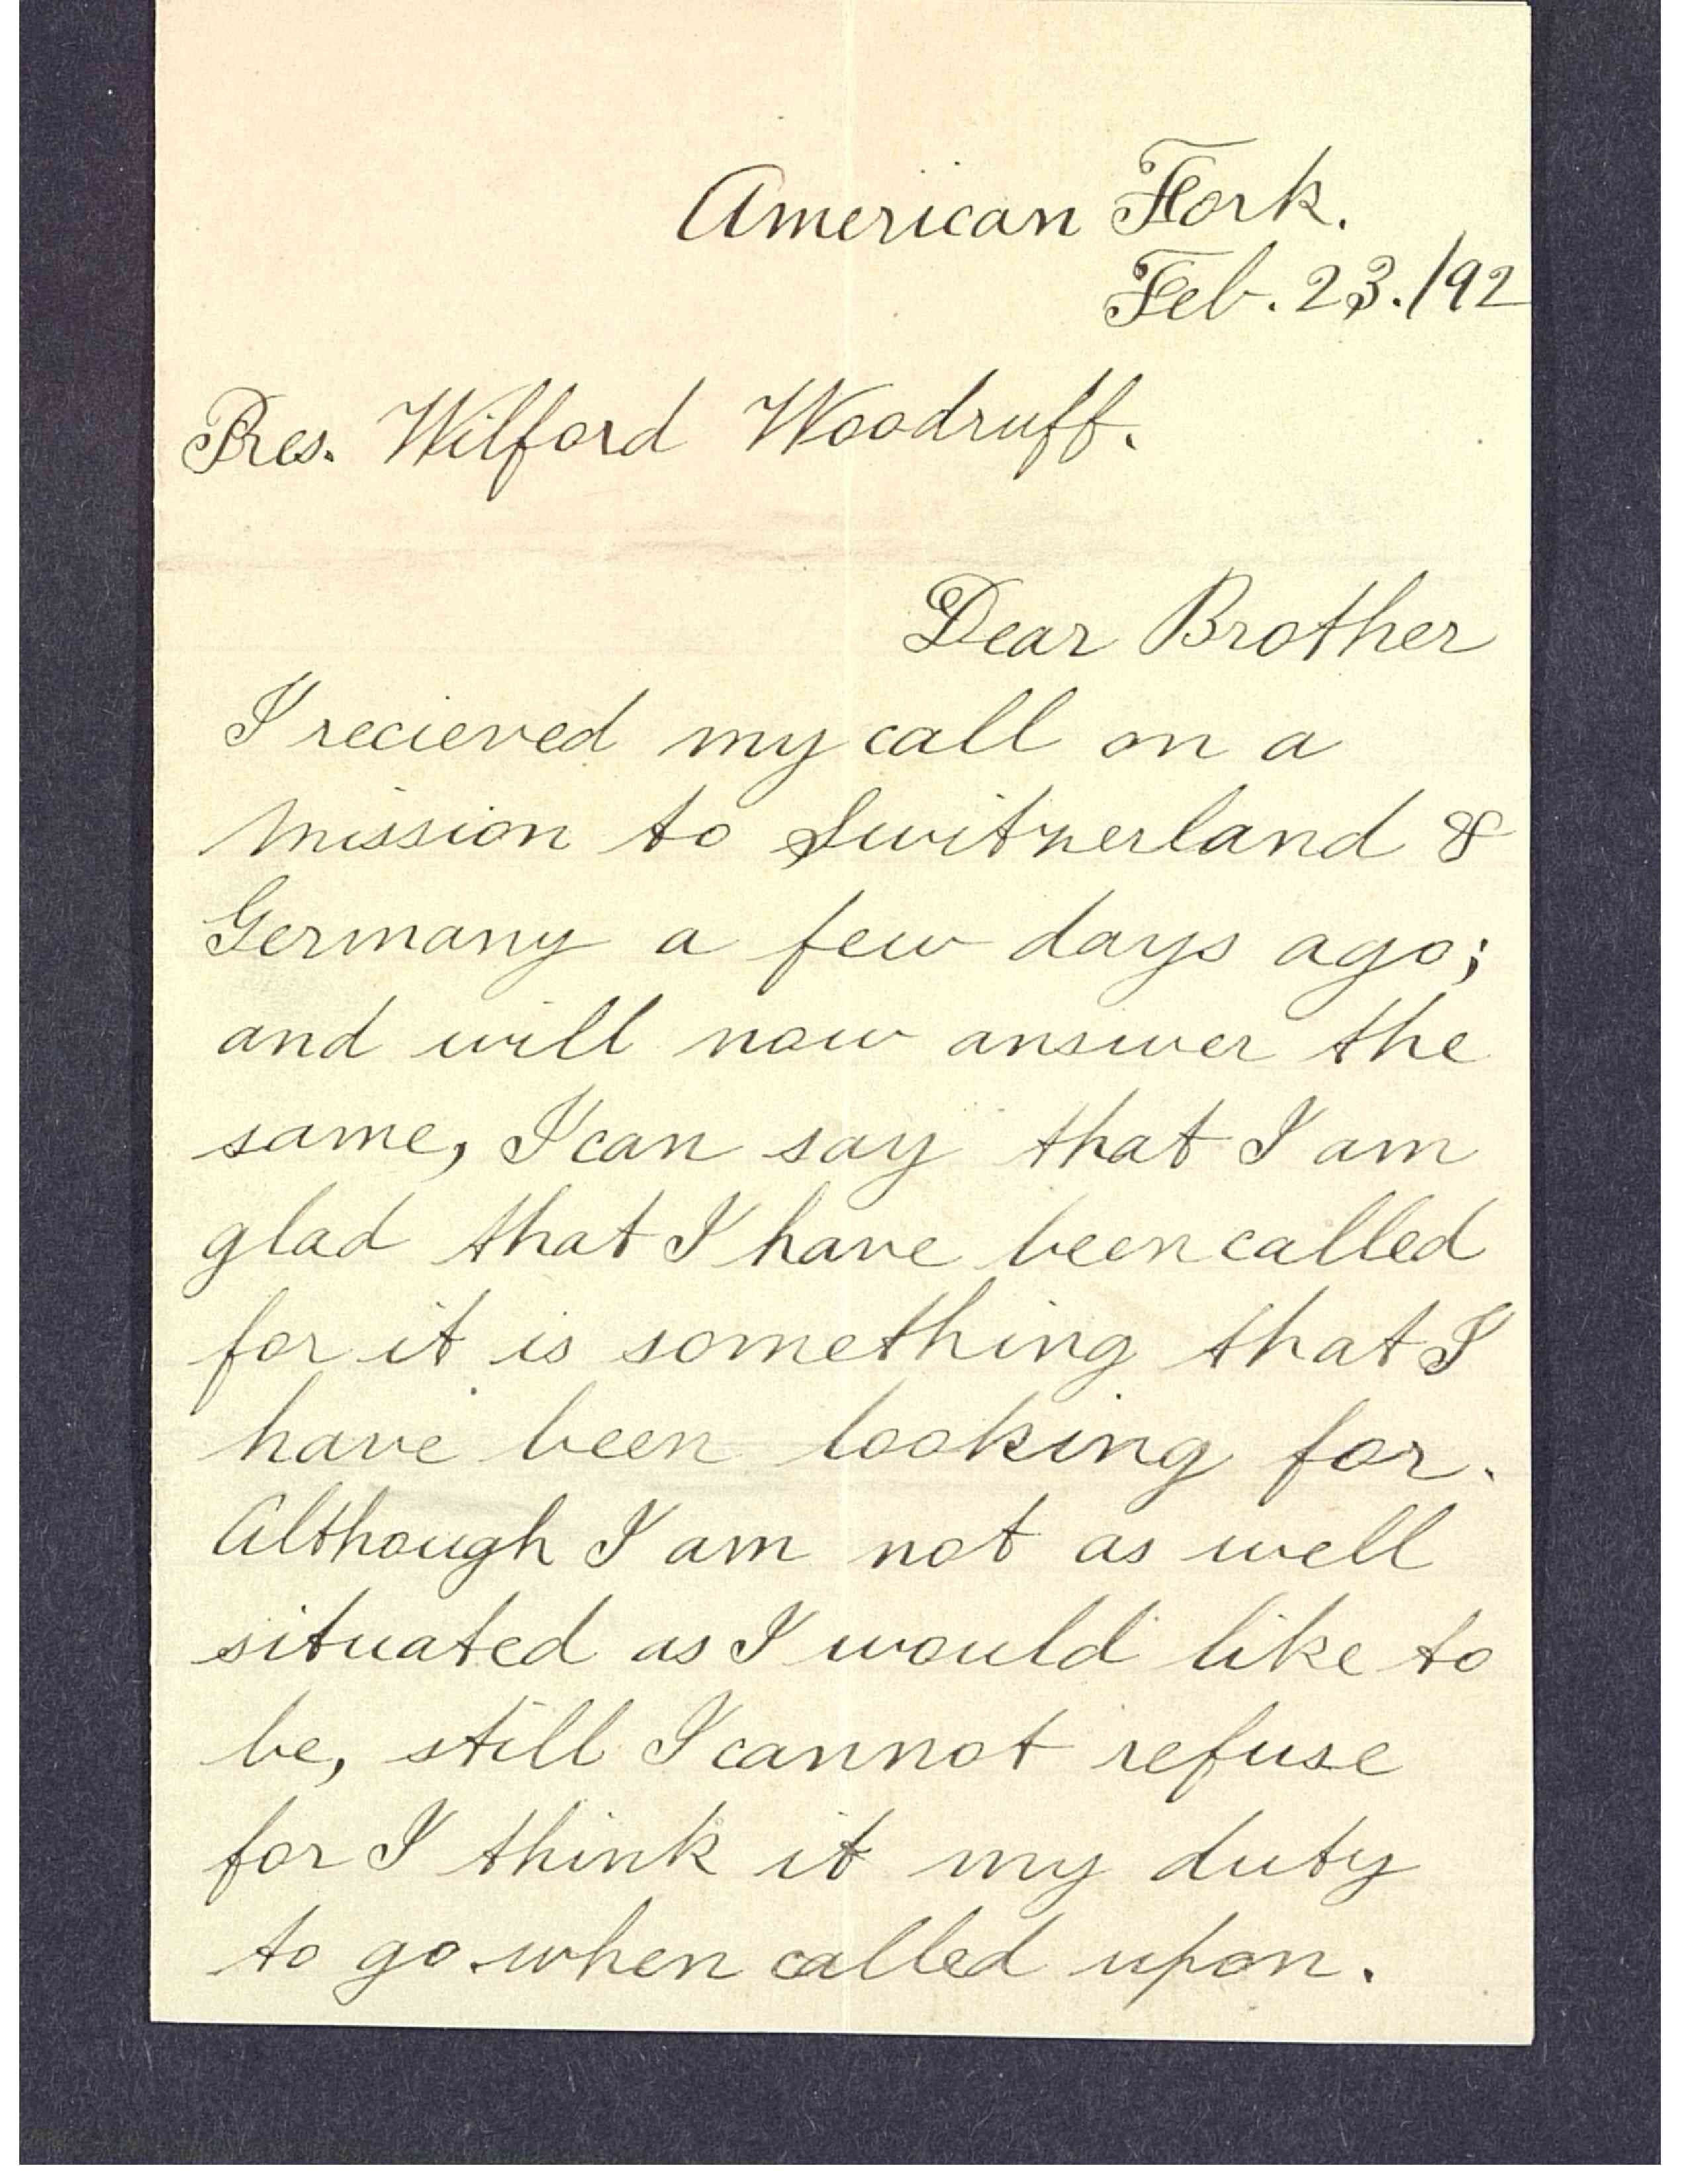 American Fork.
Feb. 23./92
Pres. Wilford Woodruff.
Dear Brother
I recieved my call on a
mission to Switzerland &
Germany a few days ago;
and will now answer the
same, I can say that I am
glad that I have been called
for it is something that I
have been looking for.
Although I am not as well
situated as I would like to
be, still I cannot refuse
for I think it my duty
to go when called upon.